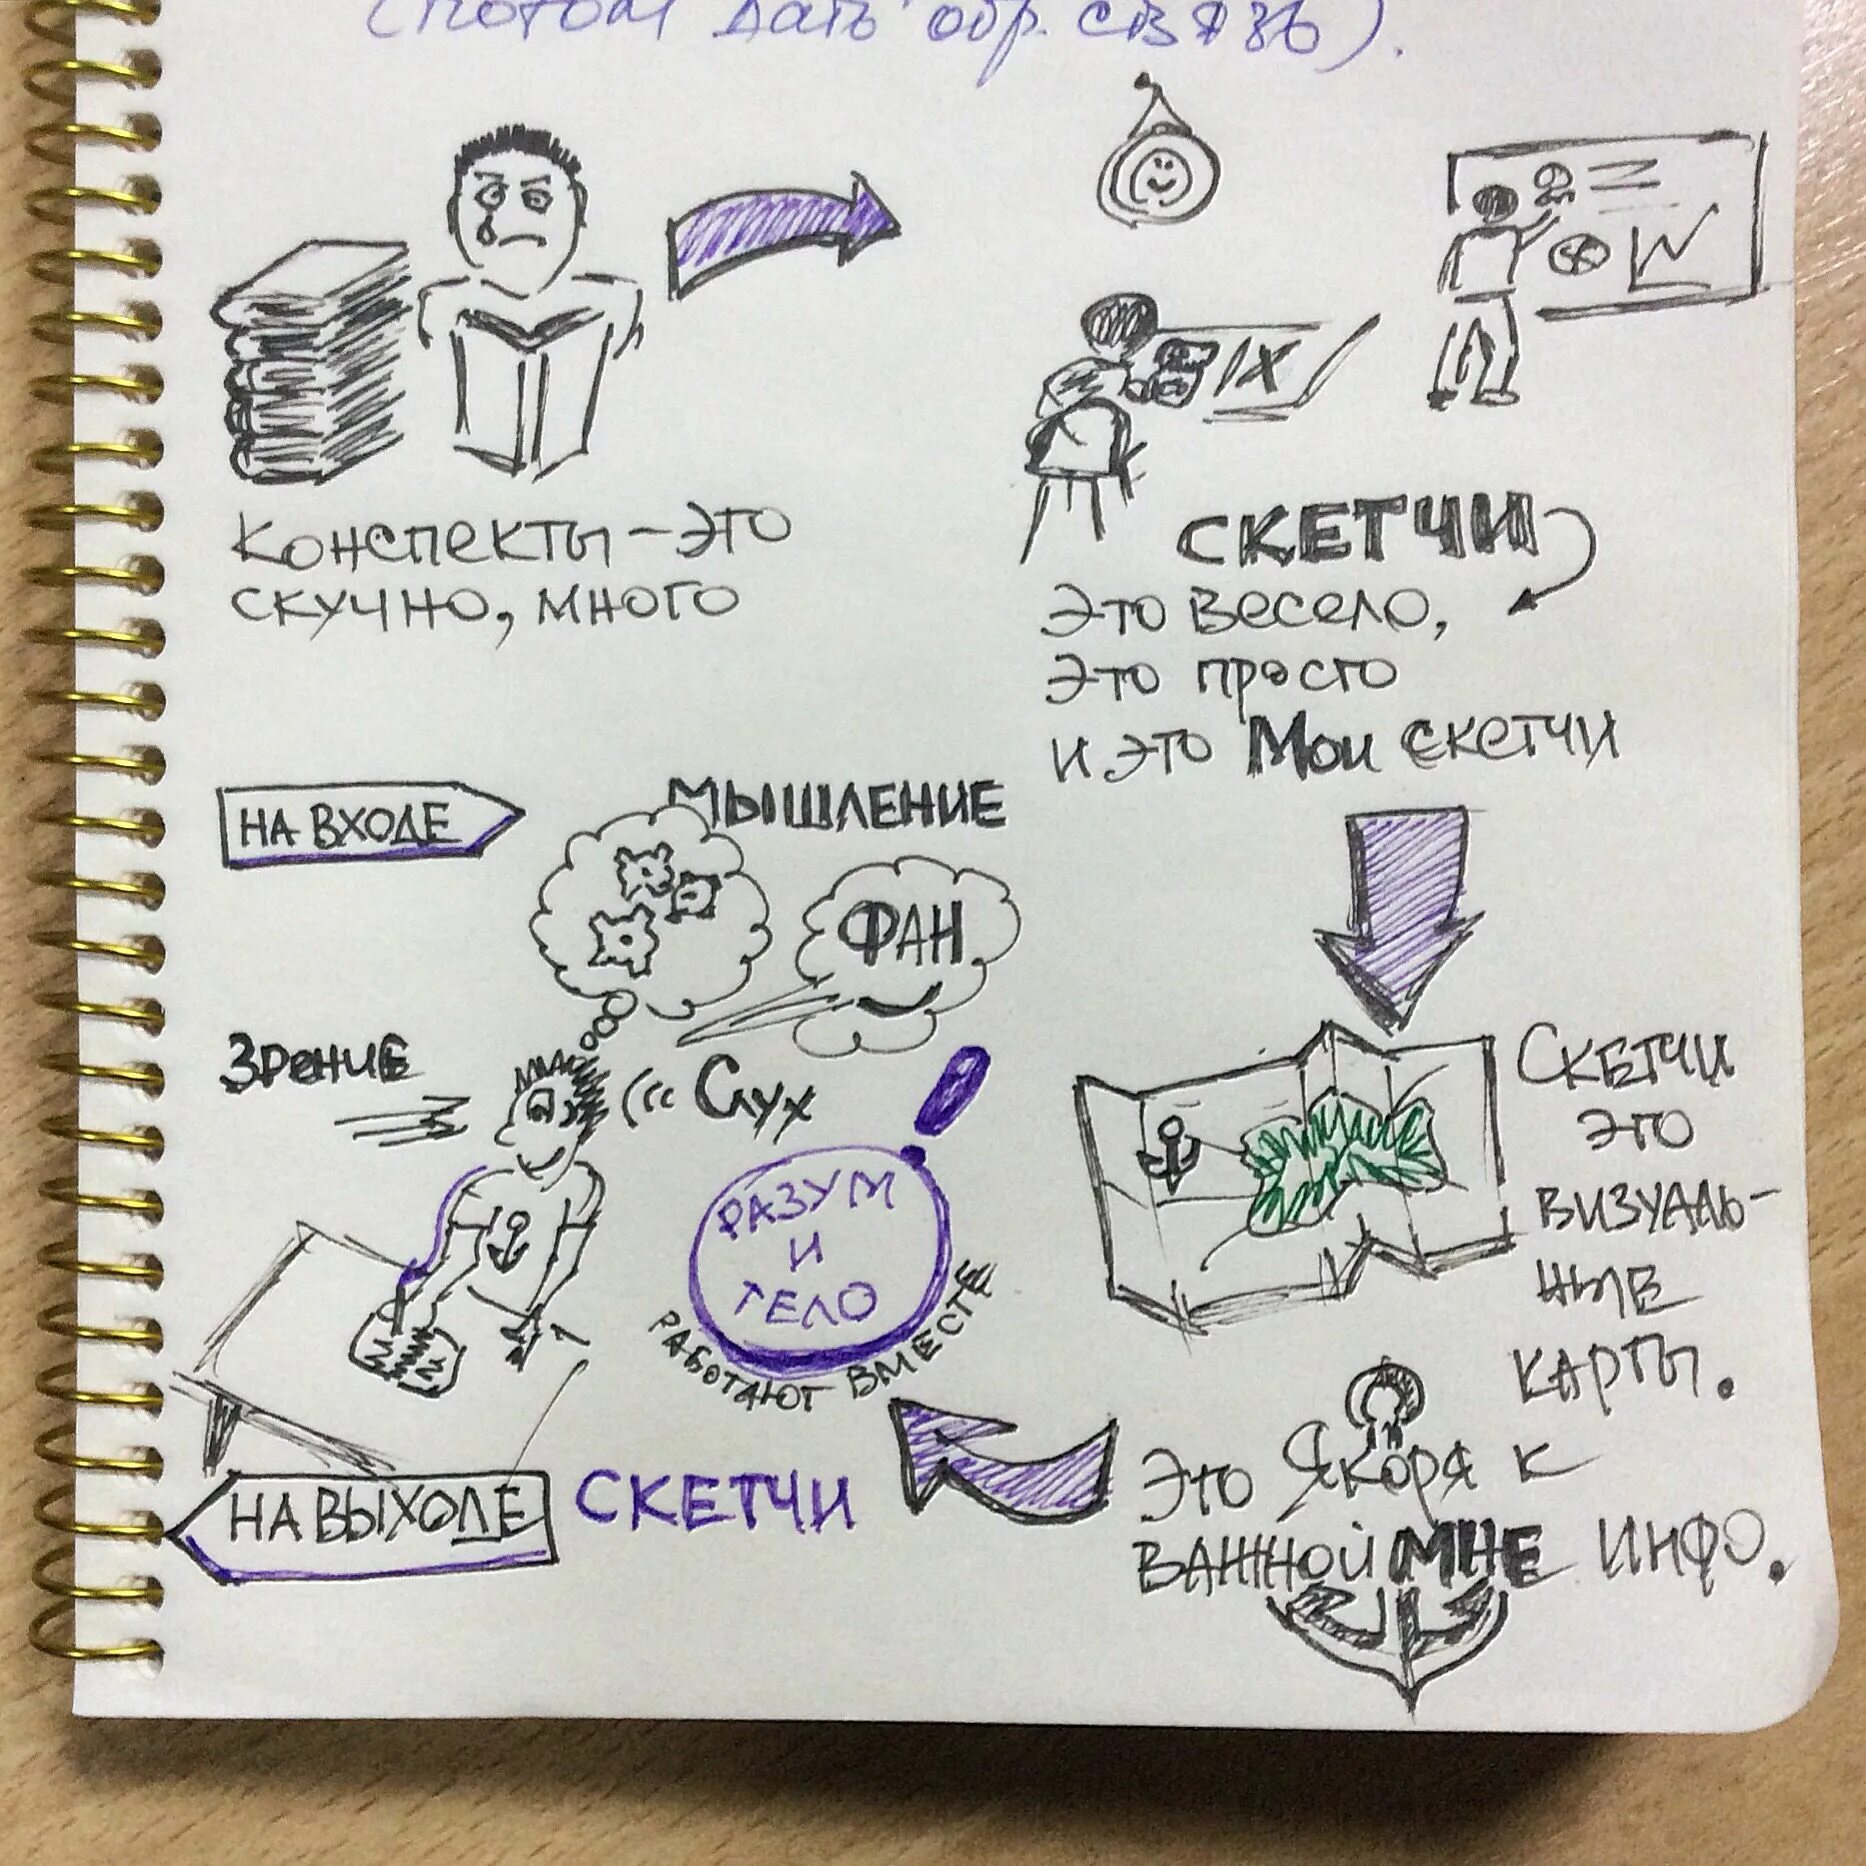 (потом дать обр. связь).
Конспекты - это
скучно, много
СКЕТЧИ
это весело,
это просто
и это Мои скетчи
НА ВХОДЕ
МЫШЛЕНИЕ
ФАН
Зрение
Слух
РАЗУМ
И
ТЕЛО
РАБОТАЮТ ВМЕСТЕ
НА ВЫХОДЕ
СКЕТЧИ
СКЕТЧИ
ЭТО
ВИЗУАЛЬ-
НЫЕ
КАРТЫ.
Это Якоря к
ВАЖНОЙ МНЕ ИНФО.